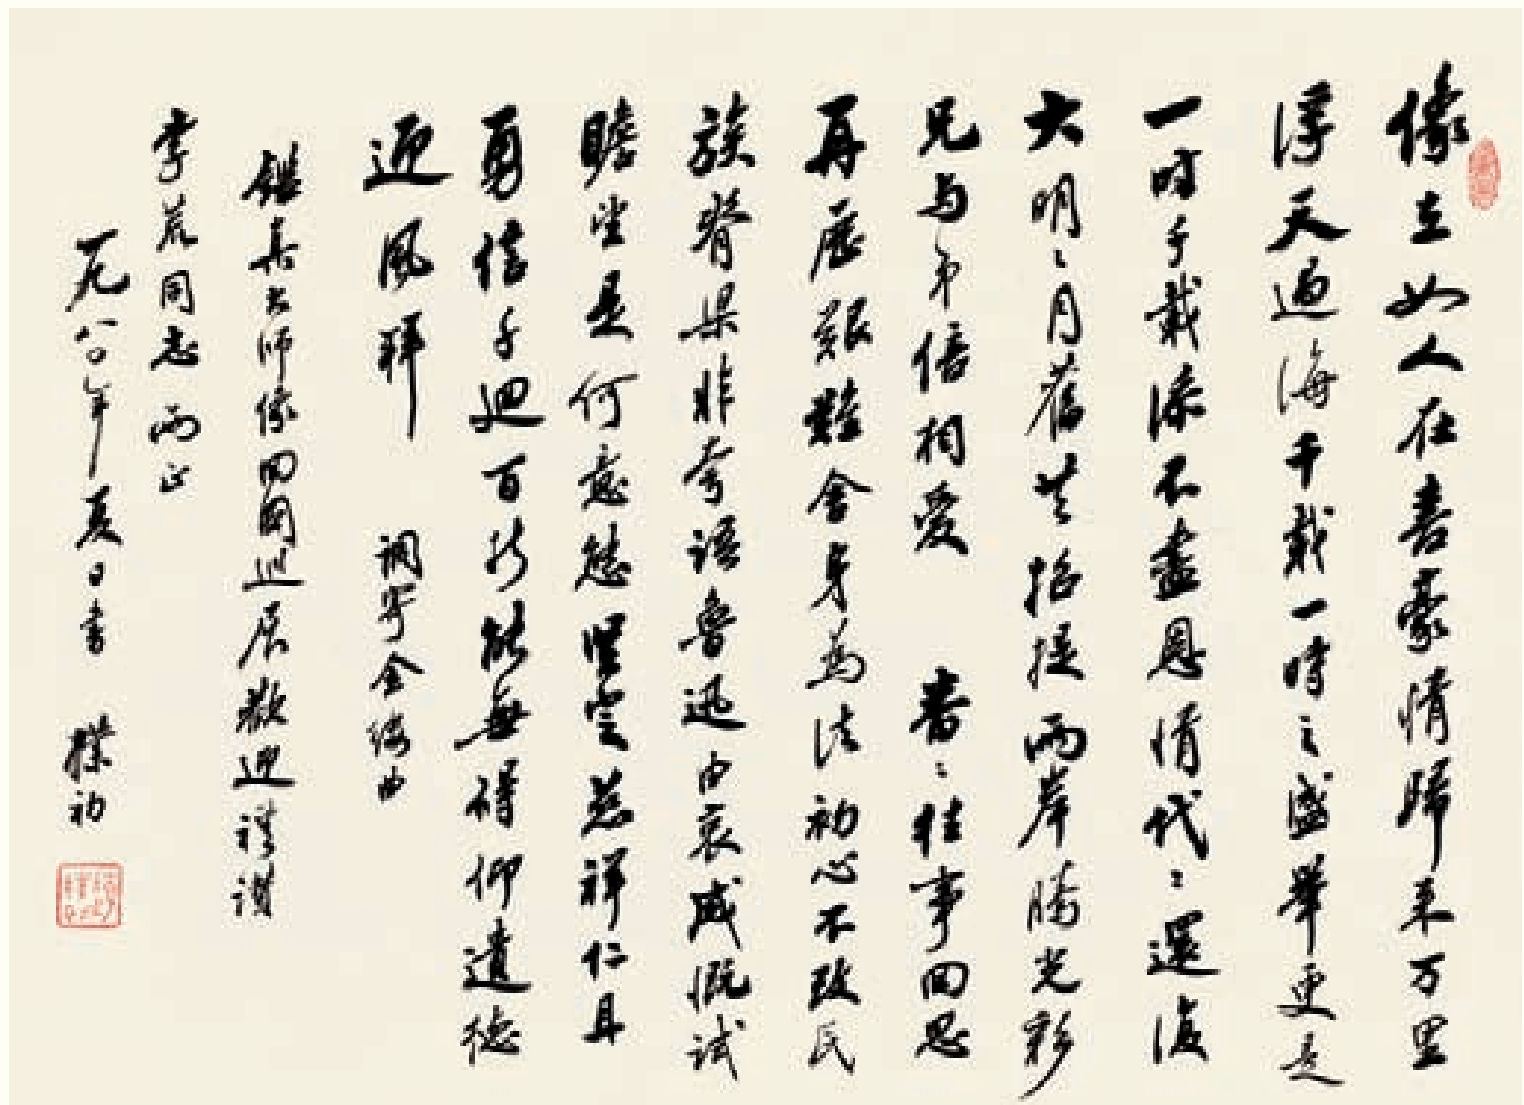 像在如人在喜豪情归来万里
浮天过海千载一时之盛举更是
一时千载添不尽恩情代代还复
大明明月旧共招提两岸胜光彩
兄与弟倍相爱　番番往事回思
再历艰难舍身为法初心不改民
族脊梁非夸语鲁迅由衷感慨试
瞻望是何意态坚定慈祥仁且
勇信千回百折能无碍仰遗德
迎风拜　调寄金缕曲
鉴真大师像回国巡展欢迎礼赞
李荒同志两正
一九八〇年夏日书　朴初